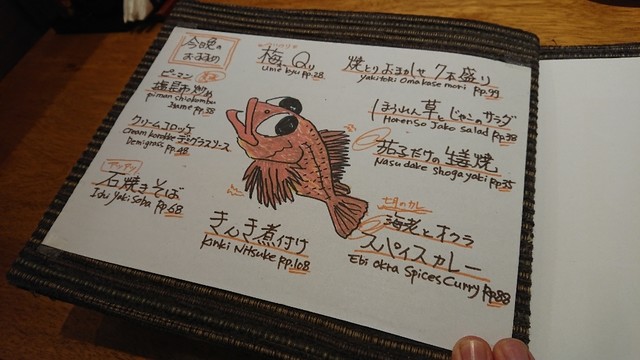 今日晩の
おすすめ
ピーマン
塩昆布炒め
piman shiokombu
itame Rp.38
クリームコロッケ
デミグラスソース
Cream korokke
Demigrass Rp.48
アツアツ
石焼きそば
Ishi Yaki soba Rp.68
梅Q
ume kyu Rp.28
焼とりおまかせ7本盛り
Yakitori Omakase mori Rp.99
ほうれん草とじゃこのサラダ
Horenso Jako salad Rp.38
茄子だけの生姜焼
Nasu dake shogayaki Rp.35
きんき煮付け
Kinki Nitsuke Rp.108
海老とオクラ
スパイスカレー
Ebi okra Spices Curry Rp.88